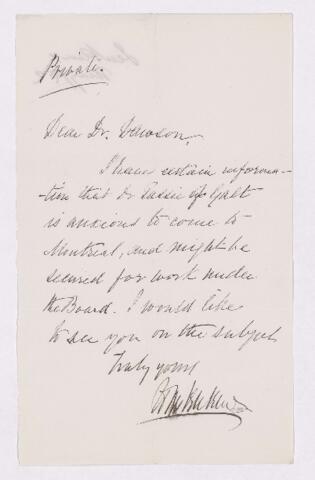 Private.
Dear Dr. Dawson,
I have certain informa-
-tion that Dr Tassie of Galt
is anxious to come to
Montreal, and might be
secured for work under
the Board. I would like
to see you on the subject
Truly yours